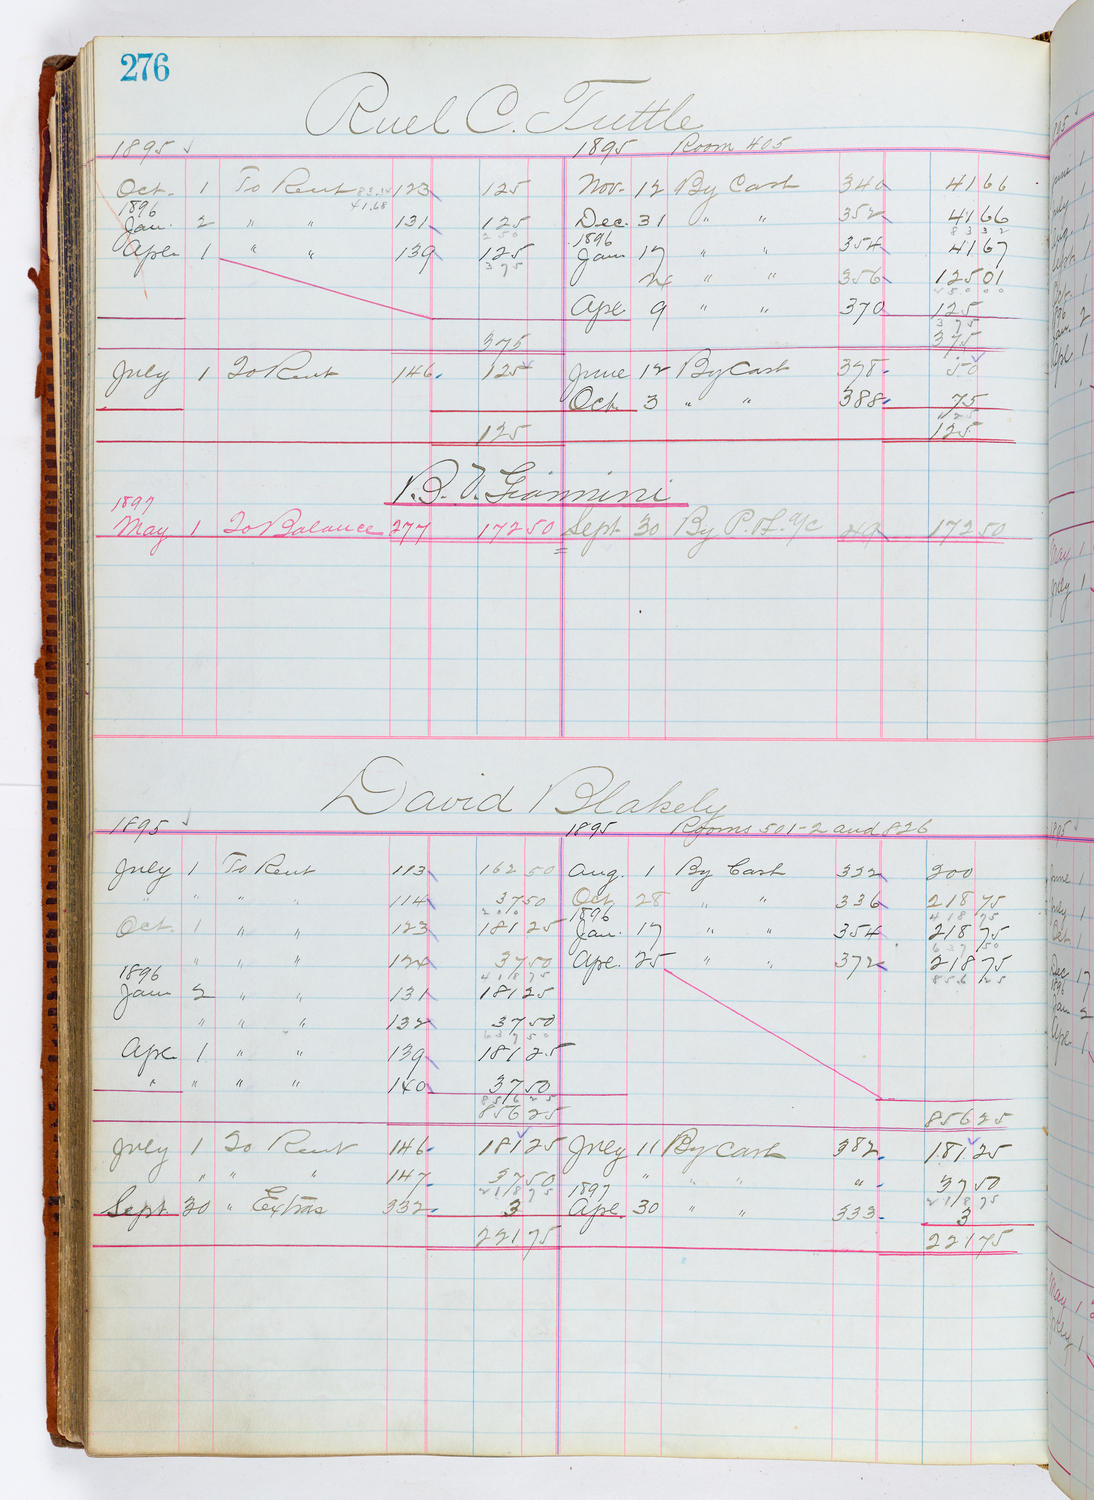 276
Ruel C. Tuttle
1895 1895 Room 405
Oct. 1 To Rent 123 125 Nov. 12 By Cash 340 41 66
1896
Jan. 2 " " 131 125 Dec. 31 " " 352 41 66
250 83 32
1896
Apr. 1 " " 139 125 Jan 17 " " 354 41 67
375
24 " " 356 125 01
250 00
Apr. 9 " " 370 125
375
375 375
July 1 To Rent 146 125 June 12 By Cash 378 50
Oct. 3 " " 388 75
125
125 125
B. V. Giannini
1897
May 1 To Balance 277 172 50 Sept 30 By P. & L. a/c 49 172 50
David Blakely
1895 1895 Rooms 501-2 and 826
July 1 To Rent 113 162 50 Aug. 1 By Cash 322 200
" " " " 114 37 50 Oct. 28 " " 336 218 75
200 418 75
1896
Oct. 1 " " 123 181 25 Jan. 17 " " 354 218 75
637 50
" " " " 124 37 50 Apr. 25 " " 372 218 75
418 75 856 25
1896
Jan 2 " " 131 181 25
" " " 132 37 50
637 50
Apr. 1 " " 139 181 25
" " " " 140 37 50
856 25
856 25 856 25
July 1 To Rent 146 181 25 July 11 By Cash 382 181 25
" " " 147 37 50 " " " " " 37 50
218 75 218 75
1897
Sept. 30 " Extras 332 3 Apr. 30 " " 333 3
221 75 221 75